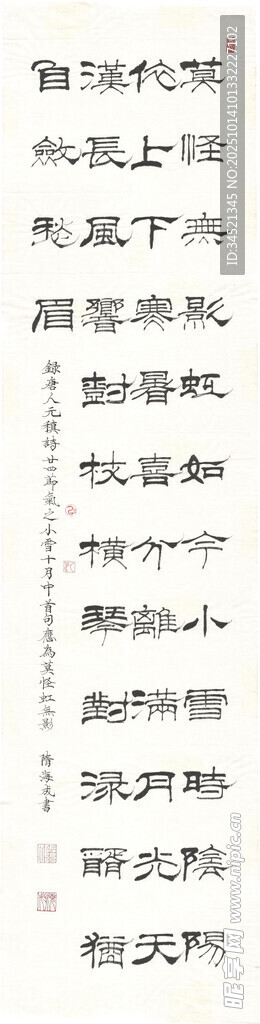 莫怪無影虹如今小雪時陰陽
依上下寒暑喜分離滿月光天
漢長風響尌枝橫琴對淥醑猶
自斂愁眉
錄唐人元稹詩廿四節氣之小雪十月中首句應為莫怪虹無影
隋海書
ID:34521345 NO:20251014101332227102
昵享网 www.nipic.cn